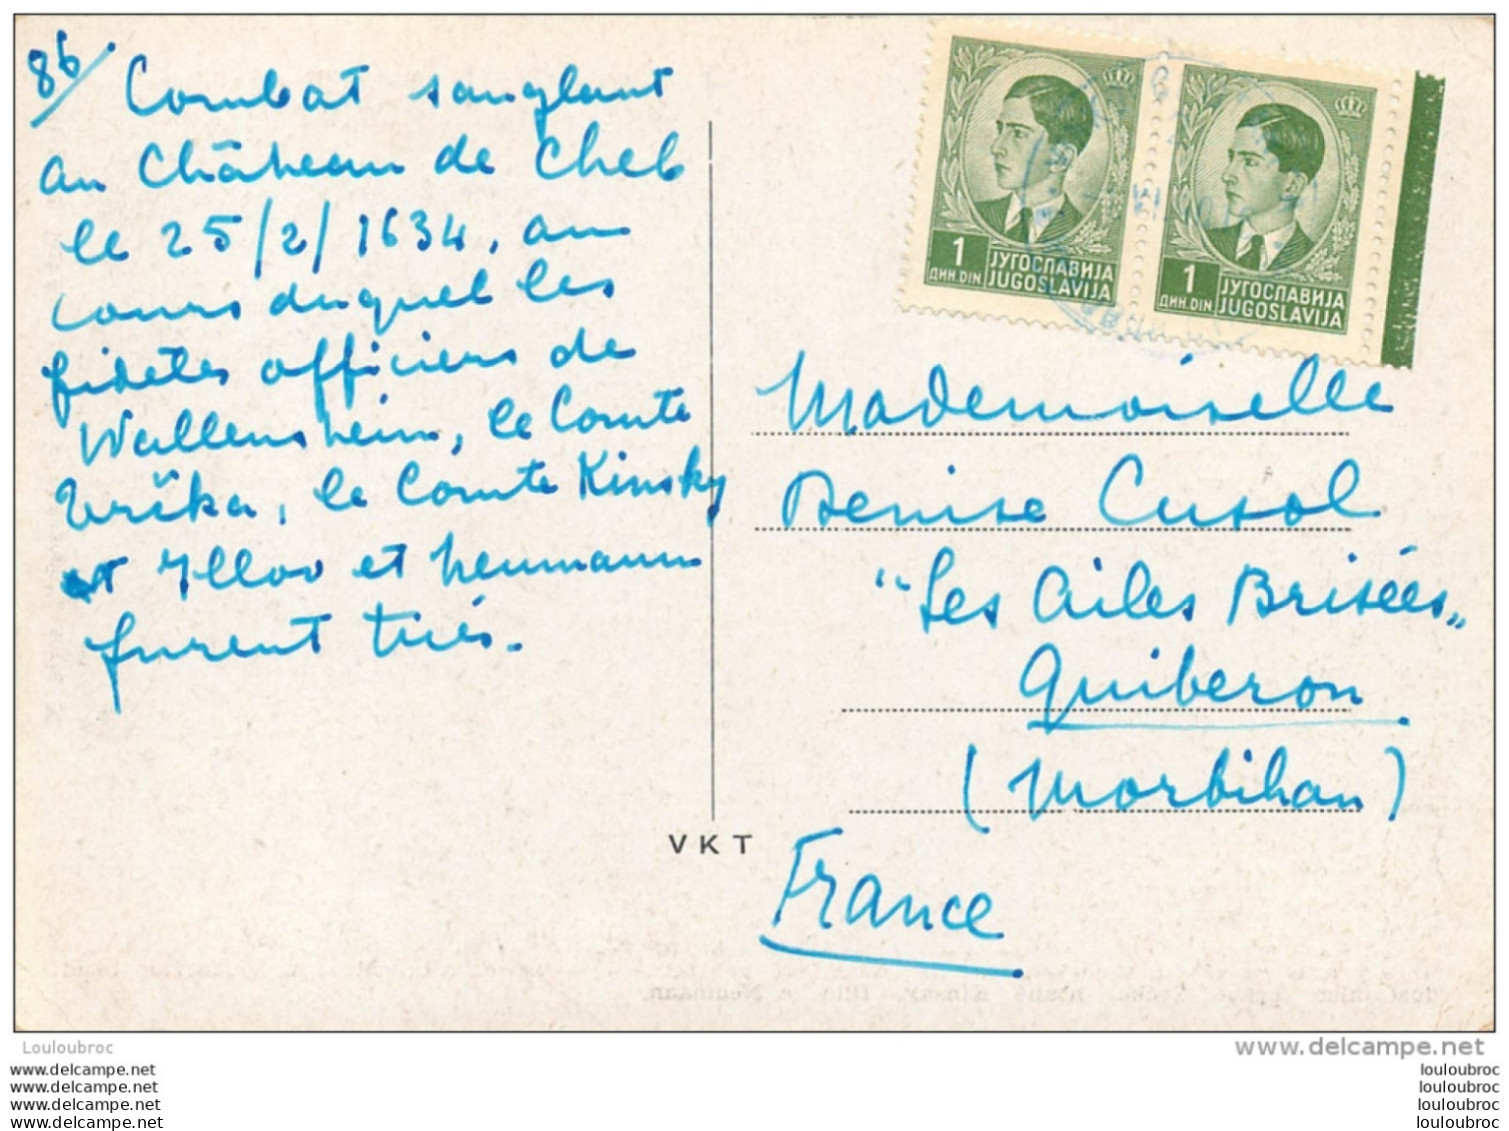 86/ Combat sanglant
au Château de Cheb
le 25/2/1634, au
cours duquel les
fidèles officiers de
Wallenstein, le Comte
Trčka, le Comte Kinsky
et Illov et Neumann
furent tués.
1 ДИН. DIN
ЈУГОСЛАВИЈА
JUGOSLAVIJA
1 ДИН. DIN
ЈУГОСЛАВИЈА
JUGOSLAVIJA
Mademoiselle
Denise Cusol
"Les Ailes Brisées"
Quiberon
(Morbihan)
France
VKT
Louloubroc
www.delcampe.net
www.delcampe.net
www.delcampe.net
www.delcampe.net
©www.delcampe.net
louloubroc
louloubroc
louloubroc
louloubroc